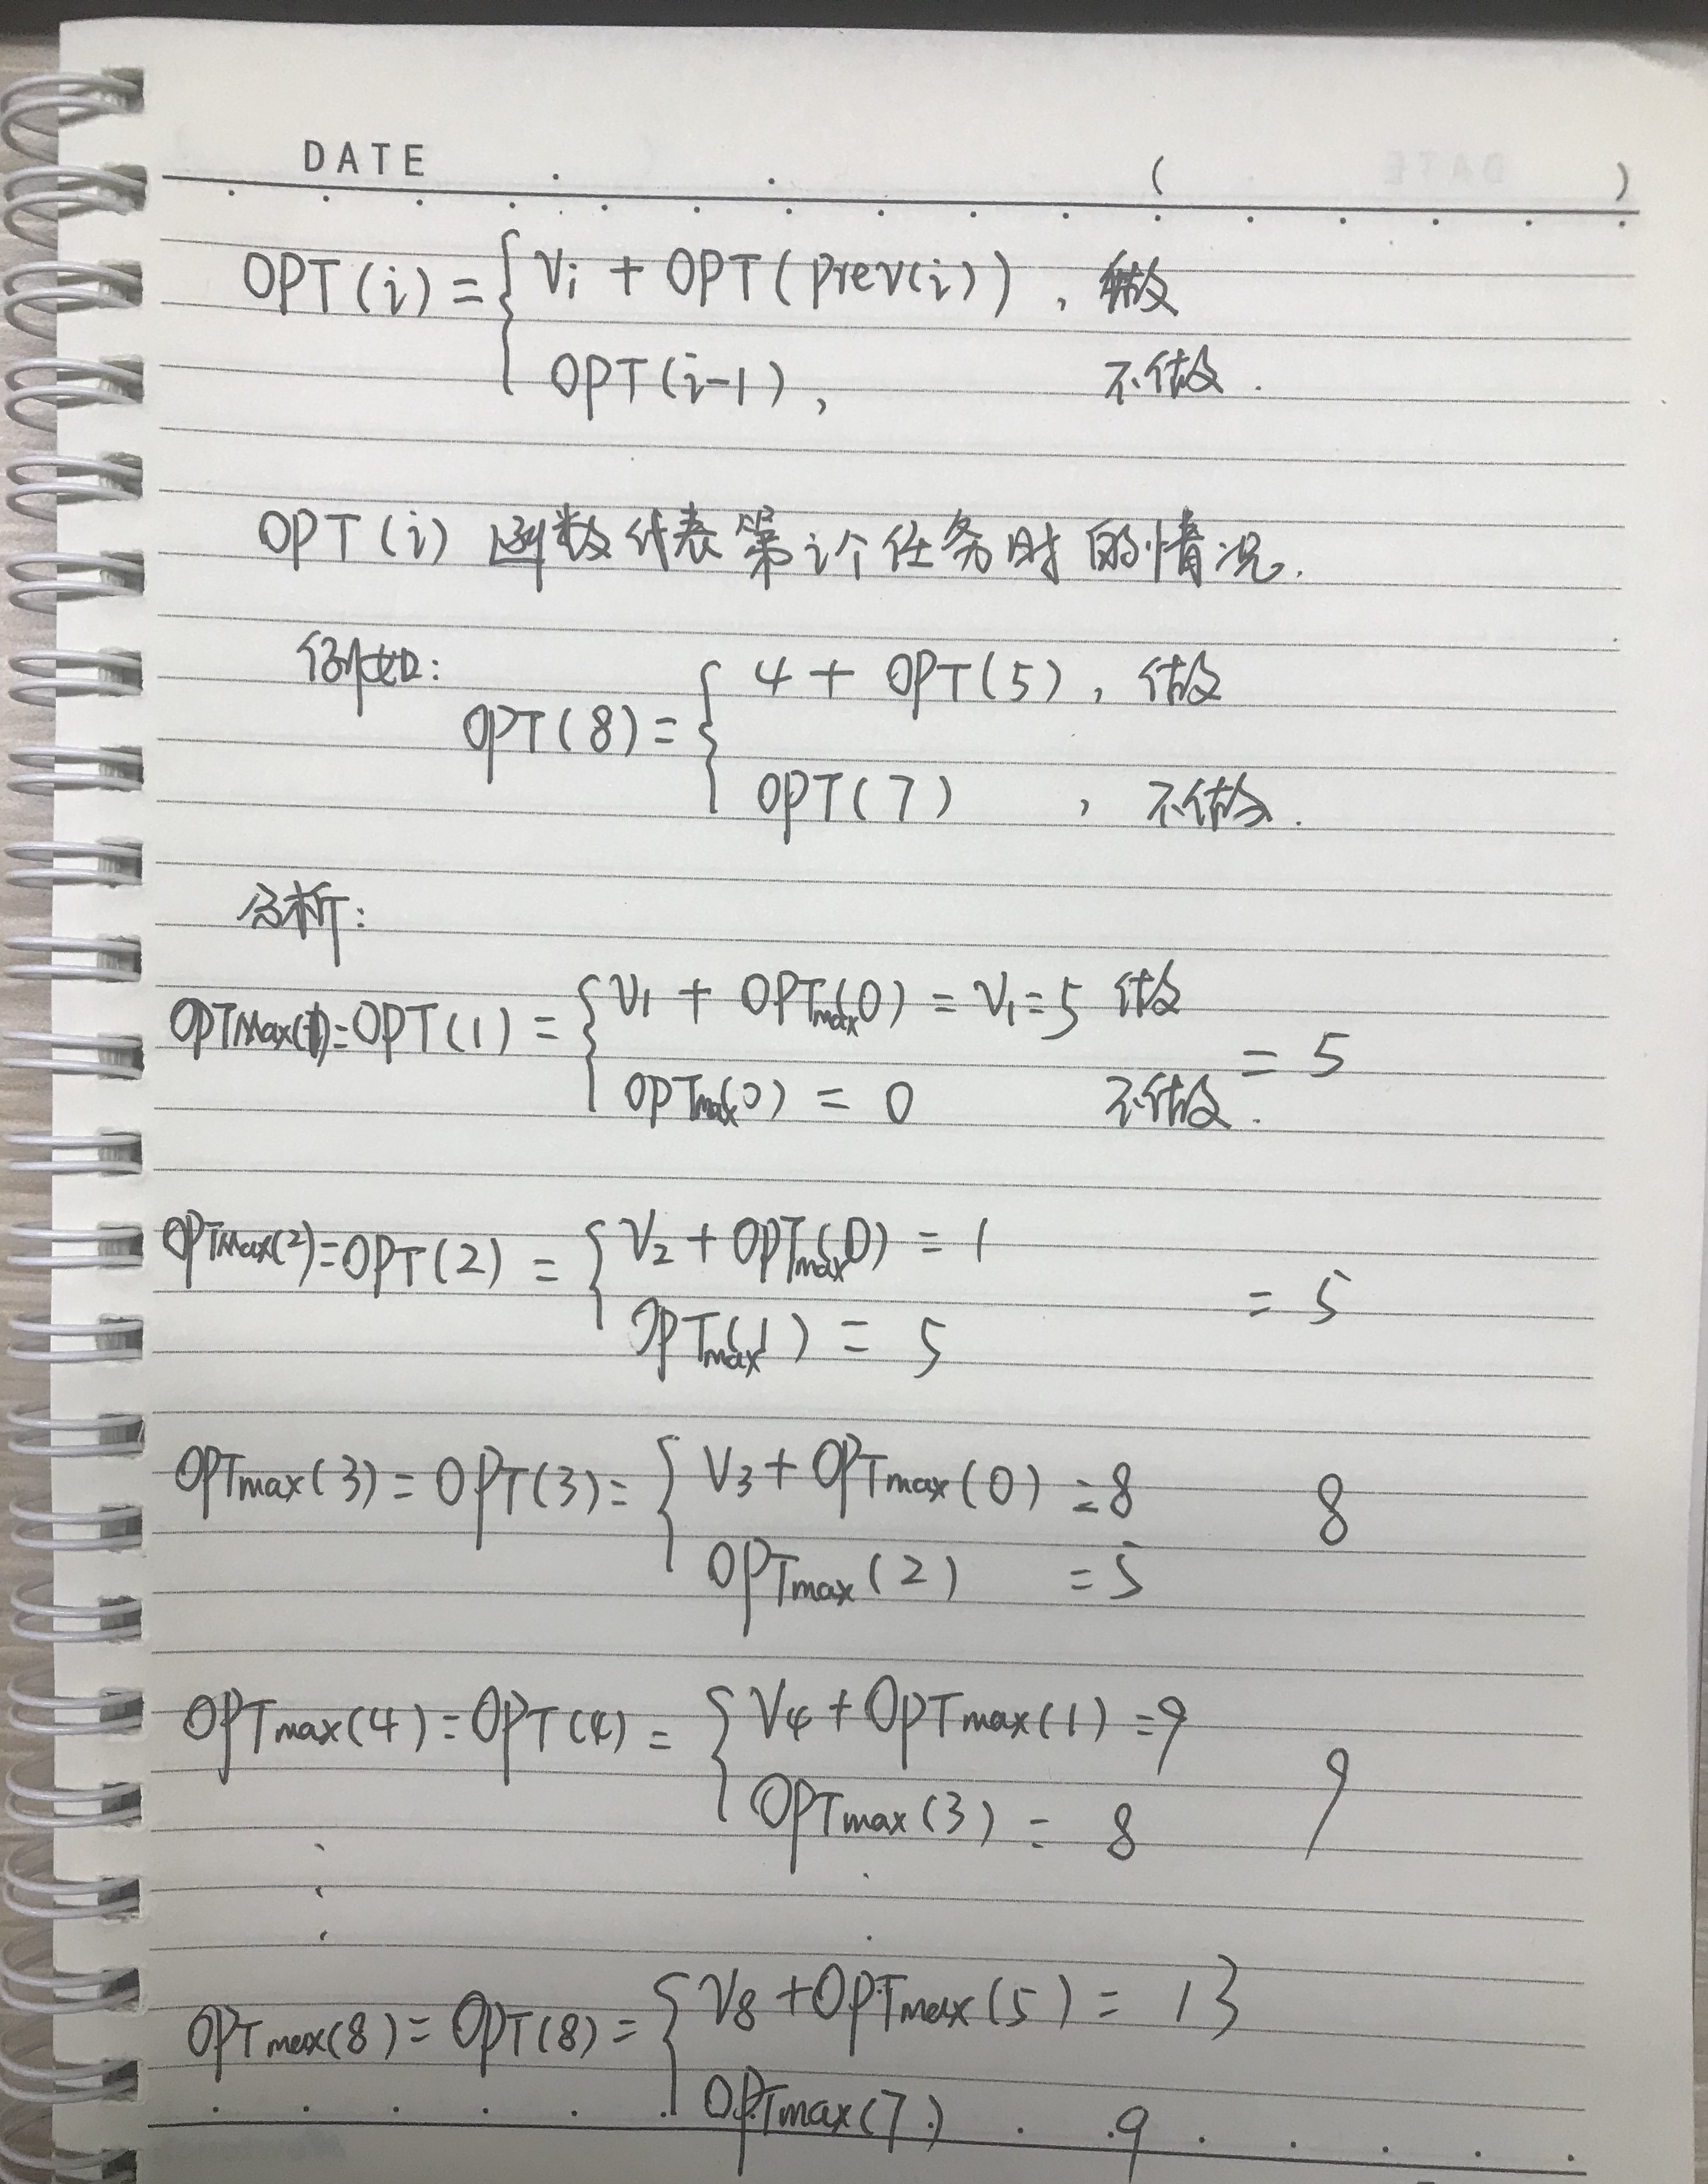 DATE ( )
OPT(i) = { Vi + OPT(prev(i)), 做
OPT(i-1), 不做.
OPT(i) 函数代表第i个任务时的情况.
例如:
OPT(8) = { 4 + OPT(5), 做
OPT(7), 不做.
分析:
OPTMax(1)=OPT(1) = { V1 + OPTmax(0) = V1=5 做
OPTmax(0) = 0 不做. = 5
OPTMax(2)=OPT(2) = { V2 + OPTmax(0) = 1
OPTmax(1) = 5 = 5
OPTmax(3) = OPT(3) = { V3 + OPTmax(0) = 8 8
OPTmax(2) = 5
OPTmax(4) = OPT(4) = { V4 + OPTmax(1) = 9 9
OPTmax(3) = 8
OPTmax(8) = OPT(8) = { V8 + OPTmax(5) = 13
OPTmax(7) 9